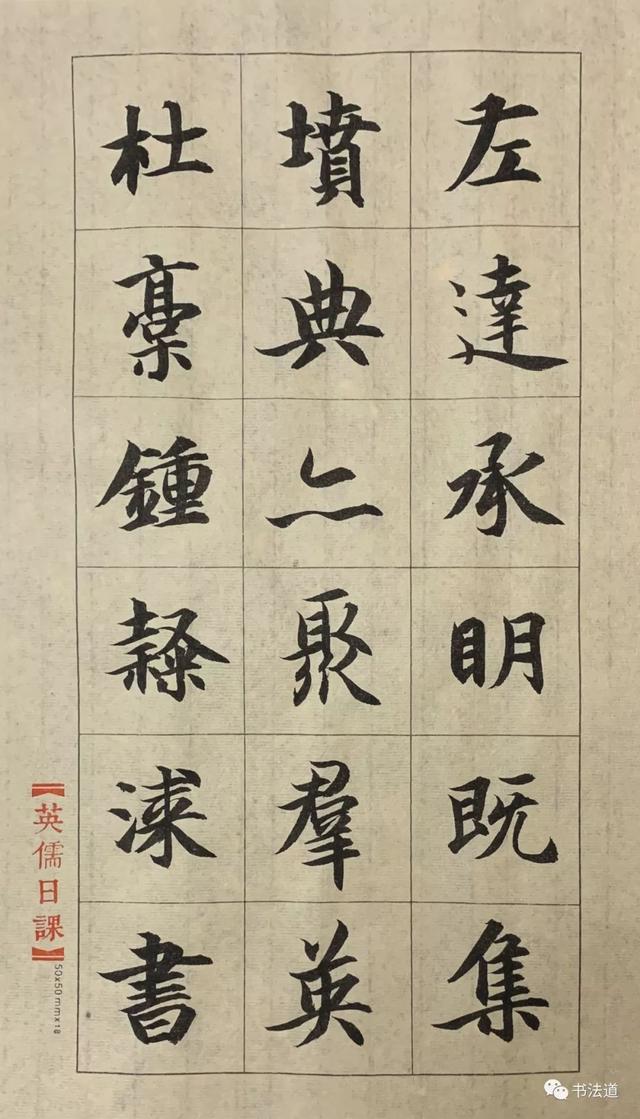 左達承明既集
墳典亦聚羣英
杜稾鍾隸漆書
【英儒日課】
50x50mmx18
书法道